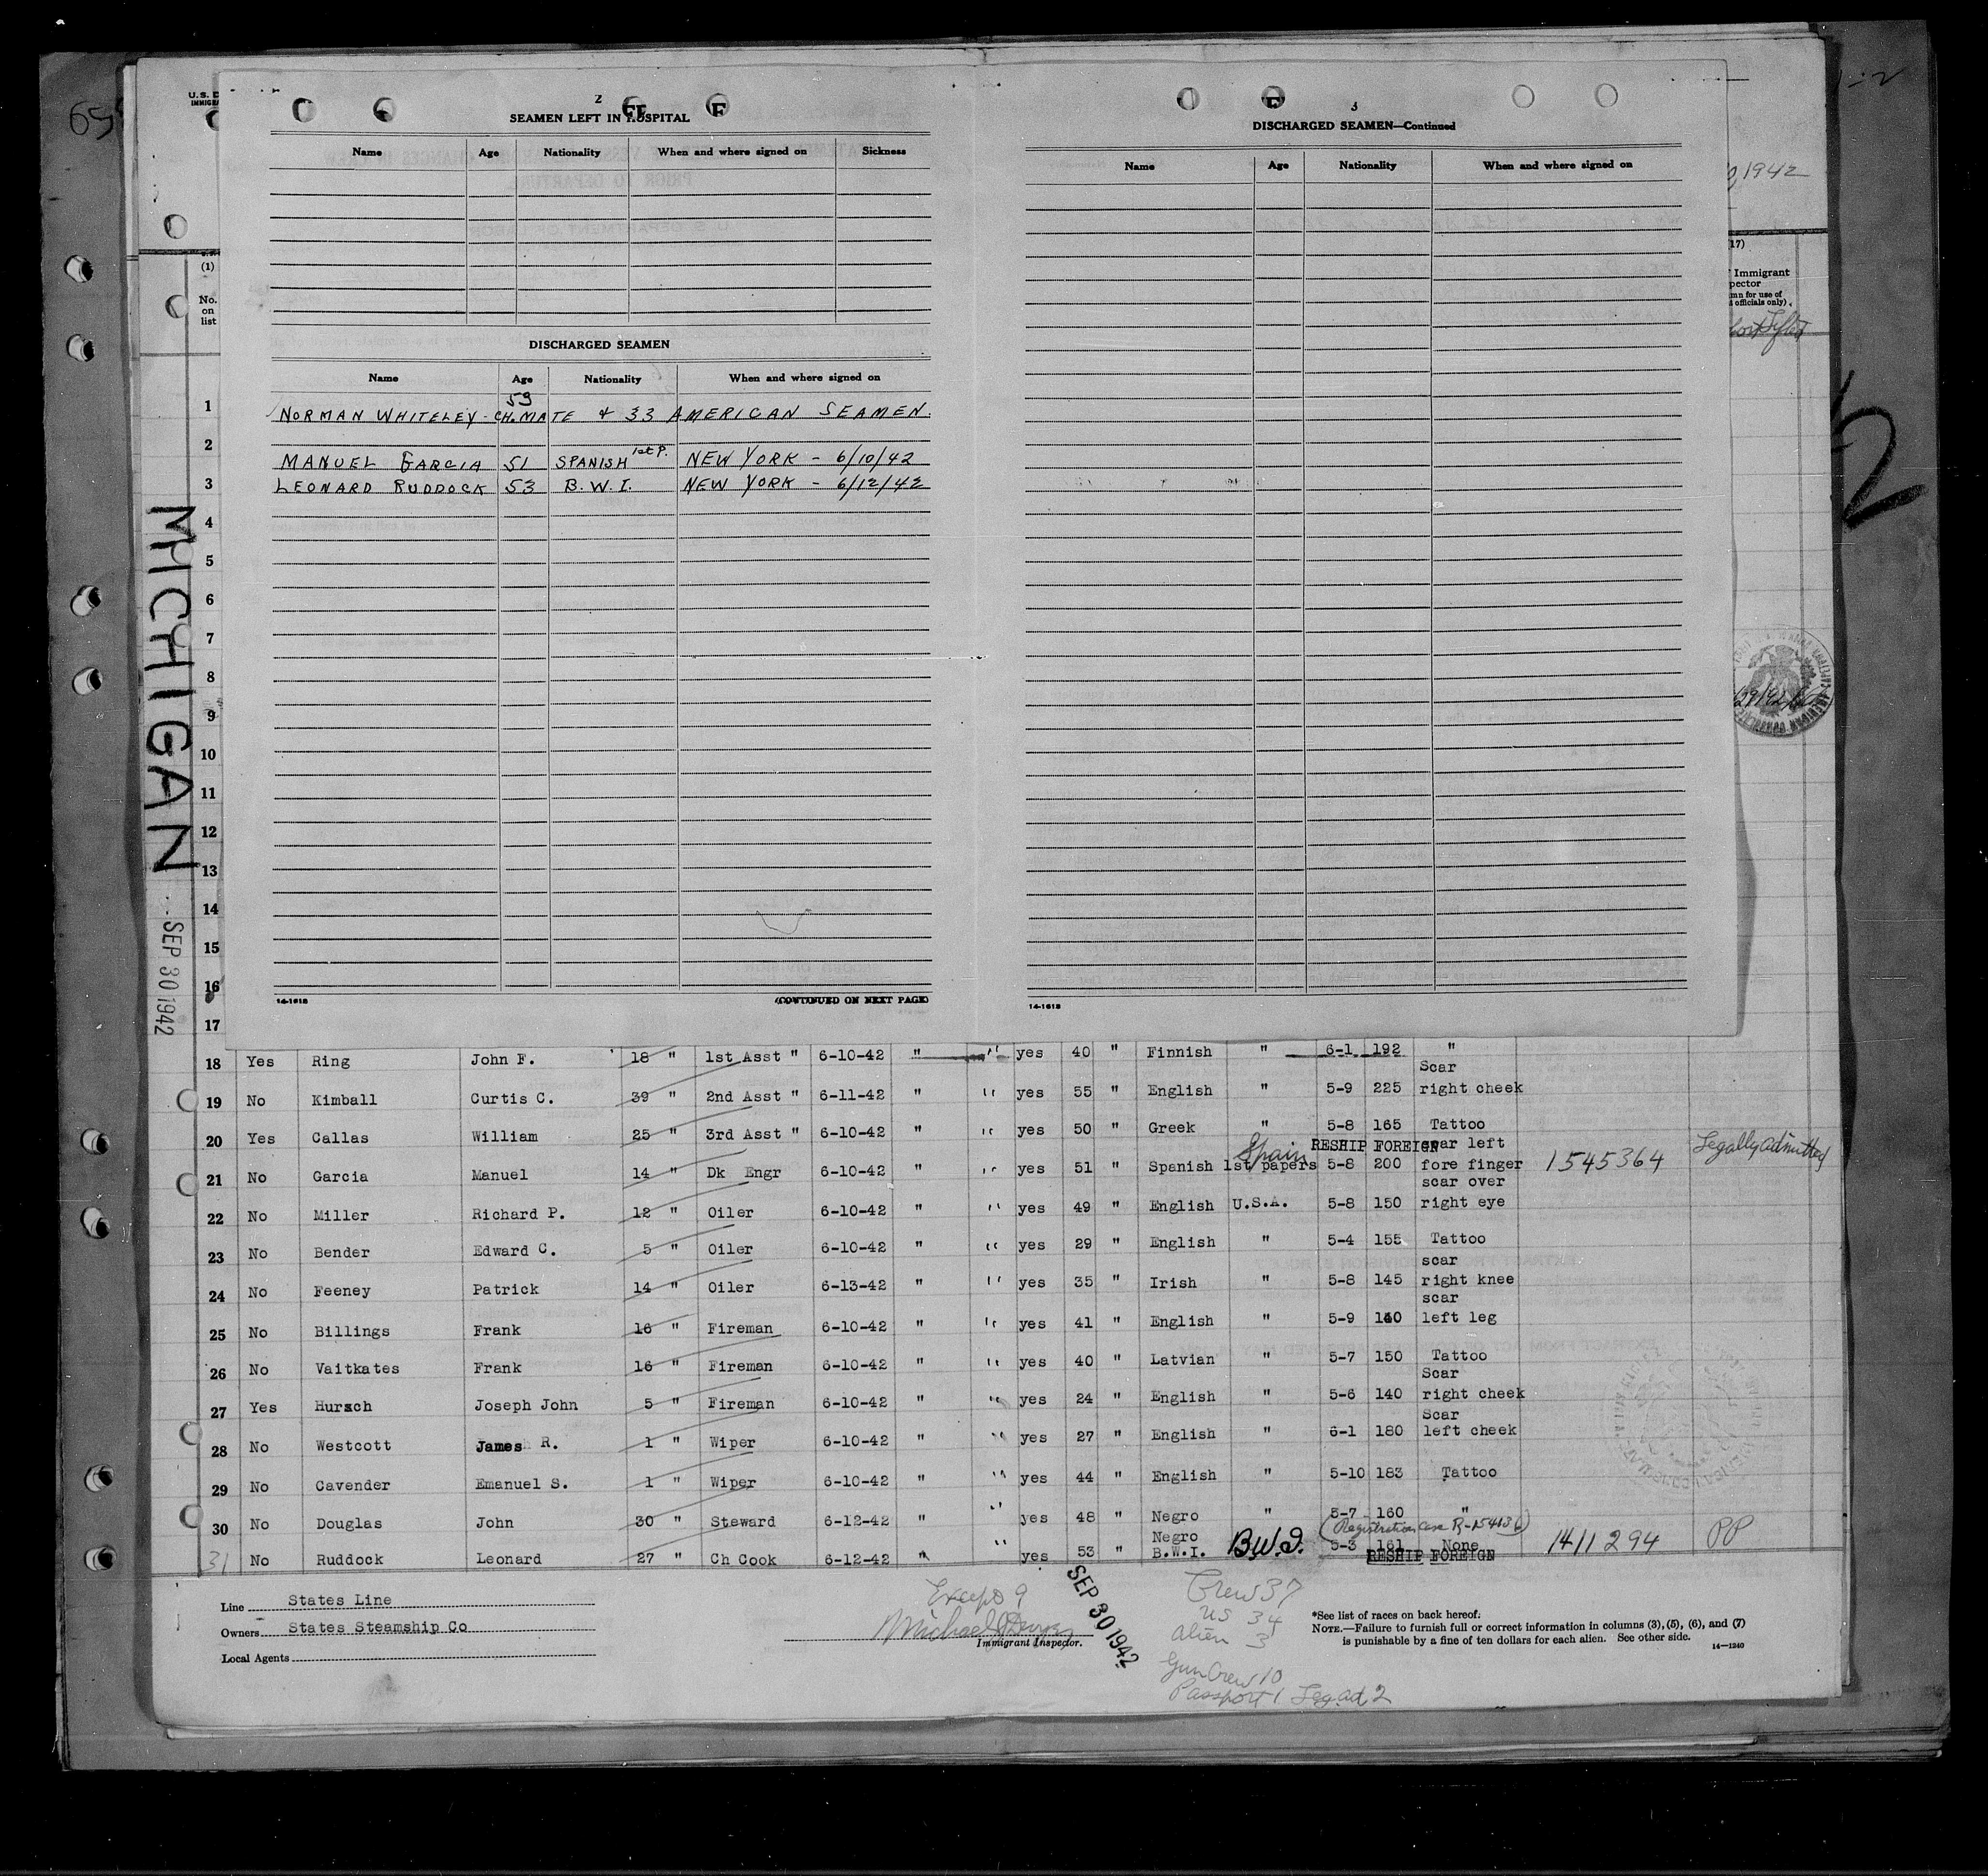 U.S. D
IMMIGRA
2
SEAMEN LEFT IN HOSPITAL
Name Age Nationality When and where signed on Sickness
DISCHARGED SEAMEN
Name Age Nationality When and where signed on
59
NORMAN WHITELEY - CH. MATE & 33 AMERICAN SEAMEN.
MANUEL GARCIA 51 SPANISH 1st P. NEW YORK - 6/10/42
LEONARD RUDDOCK 53 B.W.I. NEW YORK - 6/12/42
14-1618 (CONTINUED ON NEXT PAGE)
3
DISCHARGED SEAMEN—Continued
Name Age Nationality When and where signed on
14-1618
1942
(17)
Immigrant
pector
mn for use of
l officials only)
(1)
No.
on
list
1
2
3
4
5
6
7
8
9
10
11
12
13
14
15
16
17
MICHIGAN
SEP 30 1942
18 Yes Ring John F. 18 " 1st Asst " 6-10-42 " " yes 40 " Finnish " 6-1 192 "
19 No Kimball Curtis C. 39 " 2nd Asst " 6-11-42 " " yes 55 " English " 5-9 225 Scar right cheek
20 Yes Callas William 25 " 3rd Asst " 6-10-42 " " yes 50 " Greek " 5-8 165 Tattoo
Spain RESHIP FOREIGN scar left
21 No Garcia Manuel 14 " Dk Engr 6-10-42 " " yes 51 " Spanish 1st papers 5-8 200 fore finger 1545364 Legally admitted
22 No Miller Richard P. 12 " Oiler 6-10-42 " " yes 49 " English U.S.A. 5-8 150 scar over right eye
23 No Bender Edward C. 5 " Oiler 6-10-42 " " yes 29 " English " 5-4 155 Tattoo
24 No Feeney Patrick 14 " Oiler 6-13-42 " " yes 35 " Irish " 5-8 145 scar right knee
25 No Billings Frank 16 " Fireman 6-10-42 " " yes 41 " English " 5-9 140 scar left leg
26 No Vaitkates Frank 16 " Fireman 6-10-42 " " yes 40 " Latvian " 5-7 150 Tattoo
27 Yes Hursch Joseph John 5 " Fireman 6-10-42 " " yes 24 " English " 5-6 140 Scar right cheek
28 No Westcott James R. 1 " Wiper 6-10-42 " " yes 27 " English " 6-1 180 Scar left cheek
29 No Cavender Emanuel S. 1 " Wiper 6-10-42 " " yes 44 " English " 5-10 183 Tattoo
30 No Douglas John 30 " Steward 6-12-42 " " yes 48 " Negro " 5-7 160 "
(Registration Case R-154136)
31 No Ruddock Leonard 27 " Ch Cook 6-12-42 " " yes 53 " Negro B.W.I. B.W.I. 5-3 161 None 1411294 PP
RESHIP FOREIGN
Line States Line
Owners States Steamship Co
Local Agents
Except 9
Immigrant Inspector.
SEP 30 1942
Crew 37
US 34
Alien 3
Gun Crew 10
Passport 1 Leg. ad 2
*See list of races on back hereof.
NOTE.—Failure to furnish full or correct information in columns (3), (5), (6), and (7)
is punishable by a fine of ten dollars for each alien. See other side.
14-1240